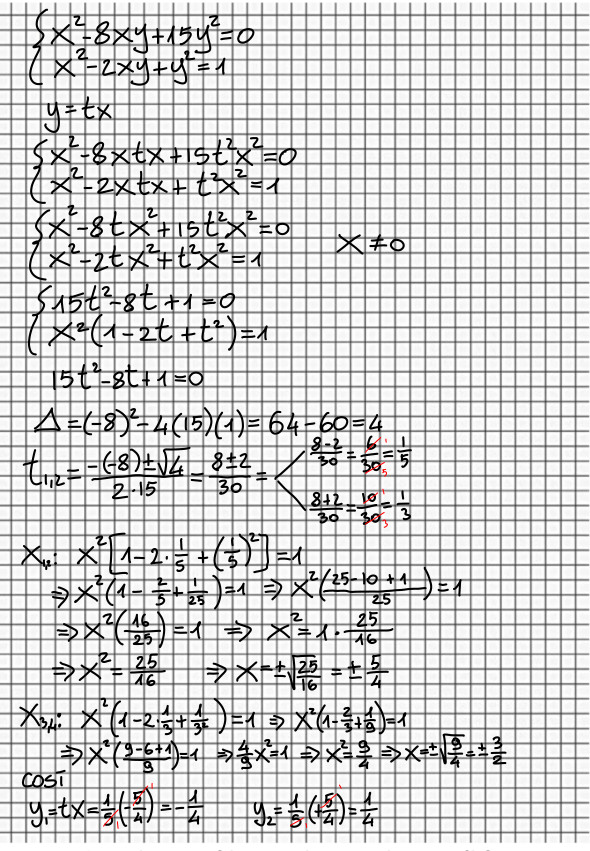 {x²-8xy+15y²=0
{x²-2xy+y²=1
y=tx
{x²-8xtx+15t²x²=0
{x²-2xtx+t²x²=1
{x²-8tx²+15t²x²=0
{x²-2tx²+t²x²=1
x≠0
{15t²-8t+1=0
{x²(1-2t+t²)=1
15t²-8t+1=0
Δ=(-8)²-4(15)(1)=64-60=4
t₁,₂=(-(-8)±√4)/(2·15)=(8±2)/30=
(8-2)/30=6/30=1/5
(8+2)/30=10/30=1/3
x₁,₂: x²[1-2·1/5+(1/5)²]=1
⇒x²(1-2/5+1/25)=1 ⇒ x²((25-10+1)/25)=1
⇒x²(16/25)=1 ⇒ x²=1·25/16
⇒x²=25/16 ⇒ x=±√(25/16)=±5/4
x₃,₄: x²(1-2·1/3+1/3²)=1 ⇒ x²(1-2/3+1/9)=1
⇒x²((9-6+1)/9)=1 ⇒4/9x²=1 ⇒x²=9/4 ⇒x=±√(9/4)=±3/2
così
y₁=tx=1/5(-5/4)=-1/4 y₂=1/5(+5/4)=1/4